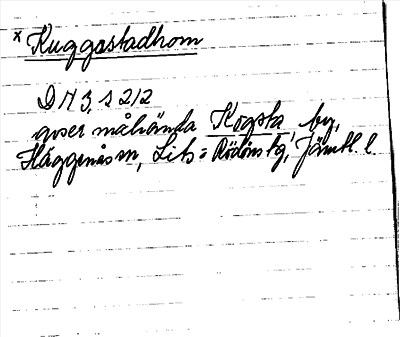 * Kuggastadhom
DN 3, s 212
avser måhända Kogsta by,
Häggenås sn, Lits= Rödöns tg, Jämtl. l.